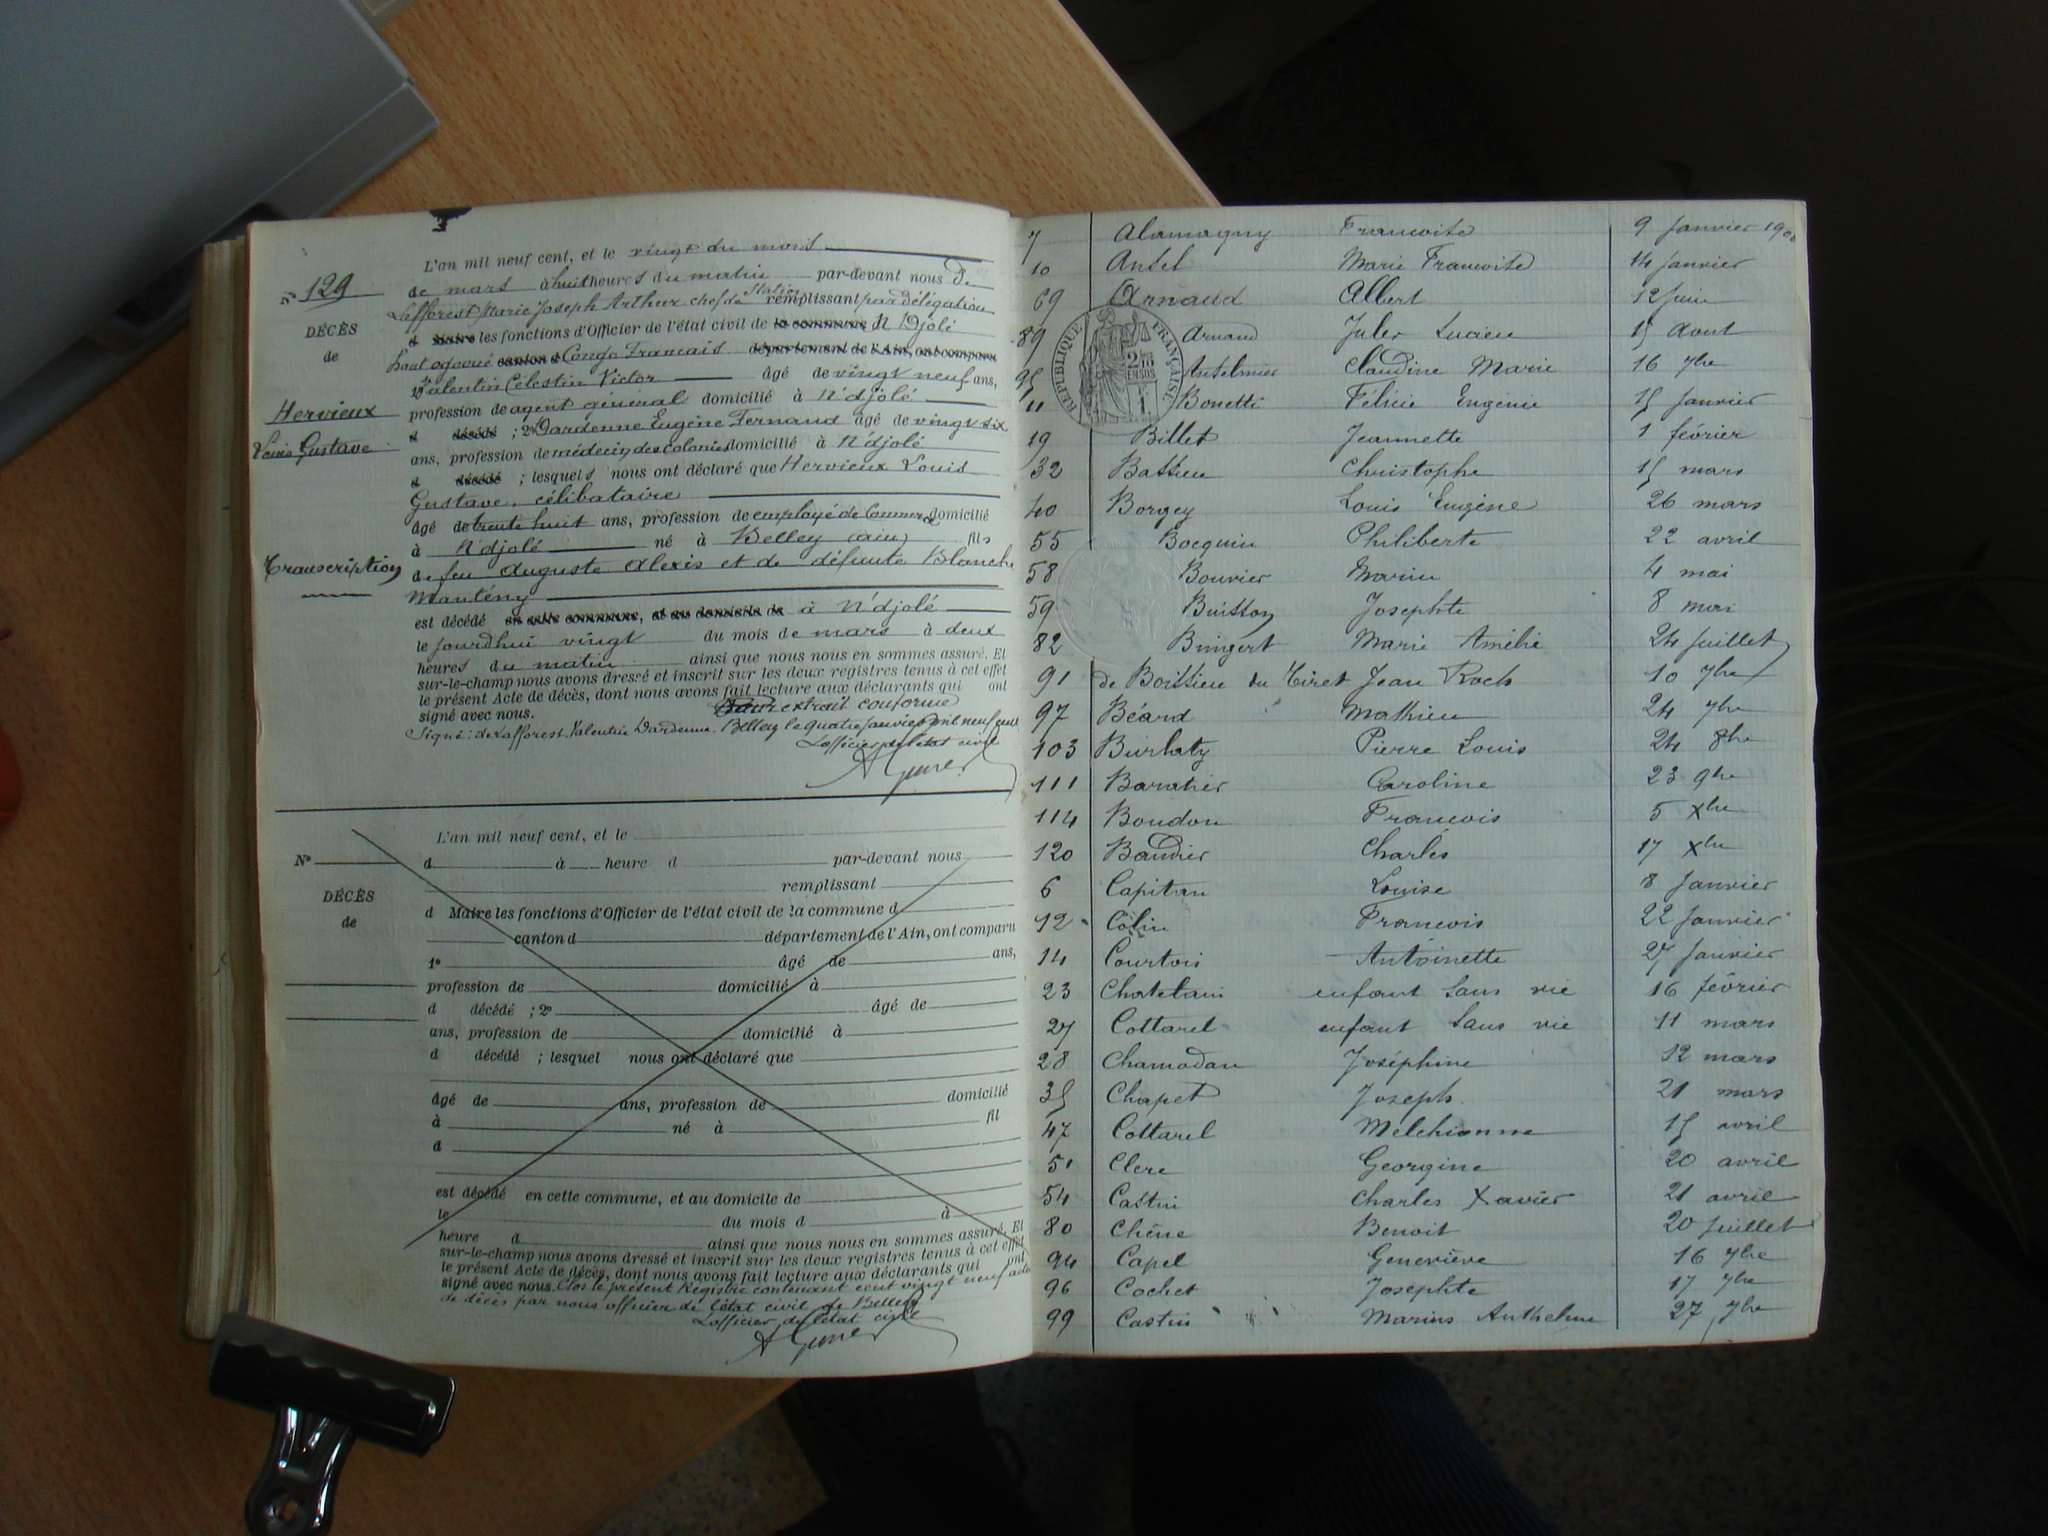 L'an mil neuf cent, et le vingt du mois
Nº 129
de mars à huit heures du matin par-devant nous De
Lafforest Marie Joseph Arthur chef de Station remplissant par délégation
DÉCÈS
d Maire les fonctions d'Officier de l'état civil de la commune N'Djolé
de
haut ogooué canton d Congo Français département de l'Ain, ont comparu
1º Valentin Célestin Victor âgé de vingt neuf ans,
Hervieux
profession de agent général domicilié à N'djolé
d décédé ; 2º Dardenne Eugène Fernand âgé de vingt six
Louis Gustave
ans, profession de médecin des colonies domicilié à N'djolé
d décédé ; lesquels nous ont déclaré que Hervieux Louis
Gustave, célibataire
âgé de trente huit ans, profession de employé de Commerce domicilié
à N'djolé né à Belley (ain) fils
Transcription
de feu Auguste Alexis et de défunte Blanche
Manteny
est décédé en cette commune, et au domicile de à N'djolé
le jourdhui vingt du mois de mars à deux
heures du matin ainsi que nous nous en sommes assuré. Et
sur-le-champ nous avons dressé et inscrit sur les deux registres tenus à cet effet
le présent Acte de décès, dont nous avons fait lecture aux déclarants qui ont
signé avec nous. extrait conforme
Signé: de Lafforest. Valentin Dardenne. Belley le quatre janvier mil neuf cent
L'officier de l'état civil
L'an mil neuf cent, et le
Nº
d à heure d par-devant nous
remplissant
DÉCÈS
d Maire les fonctions d'Officier de l'état civil de la commune d
de
canton d département de l'Ain, ont comparu
1º âgé de ans,
profession de domicilié à
d décédé ; 2º âgé de
ans, profession de domicilié à
d décédé ; lesquel nous ont déclaré que
âgé de ans, profession de domicilié
à né à fil
d
est décédé en cette commune, et au domicile de
le du mois d à
heure d ainsi que nous nous en sommes assuré. Et
sur-le-champ nous avons dressé et inscrit sur les deux registres tenus à cet effet
le présent Acte de décès, dont nous avons fait lecture aux déclarants qui ont
signé avec nous. Clos le présent Registre contenant cent vingt neuf actes
de décès par nous officier de l'état civil de Belley
L'officier de l'état civil
7 Alamagny Francoise 9 Janvier 1900
10 Ansel Marie Francoise 14 Janvier
69 Arnaud Albert 12 Juin
89 Arnaud Jules Lucien 15 Aout
95 Anselmier Claudine Marie 16 7bre
RÉPUBLIQUE FRANÇAISE
11 Bonetti Félicie Eugénie 15 Janvier
19 Billet Jeannette 1 février
32 Bassieu Christophe 15 mars
40 Borgey Louis Eugène 26 mars
55 Bocquin Philiberte 22 avril
58 Bouvier Marin 4 mai
59 Buisson Josephte 8 mai
82 Bingert Marie Amélie 24 Juillet
91 de Boissieu du Tiret Jean Roch 10 7bre
97 Béard Mathieu 24 7bre
103 Burlaty Pierre Louis 24 8bre
111 Baratier Caroline 23 9bre
114 Boudon Francois 5 Xbre
120 Baudier Charles 17 Xbre
6 Capitan Louise 8 Janvier
12 Colin Francois 22 Janvier
14 Courtois Antoinette 27 Janvier
23 Chatelain enfant sans vie 16 février
27 Cottarel enfant sans vie 11 mars
28 Chamodan Joséphine 12 mars
35 Chapet Joseph 21 mars
47 Cottarel Melchionne 15 avril
51 Clerc Georgine 20 avril
54 Castin Charles Xavier 21 avril
80 Chêne Benoit 20 Juillet
94 Capel Geneviève 16 7bre
96 Cochet Josephte 17 7bre
99 Castin Marius Anthelme 27 7bre